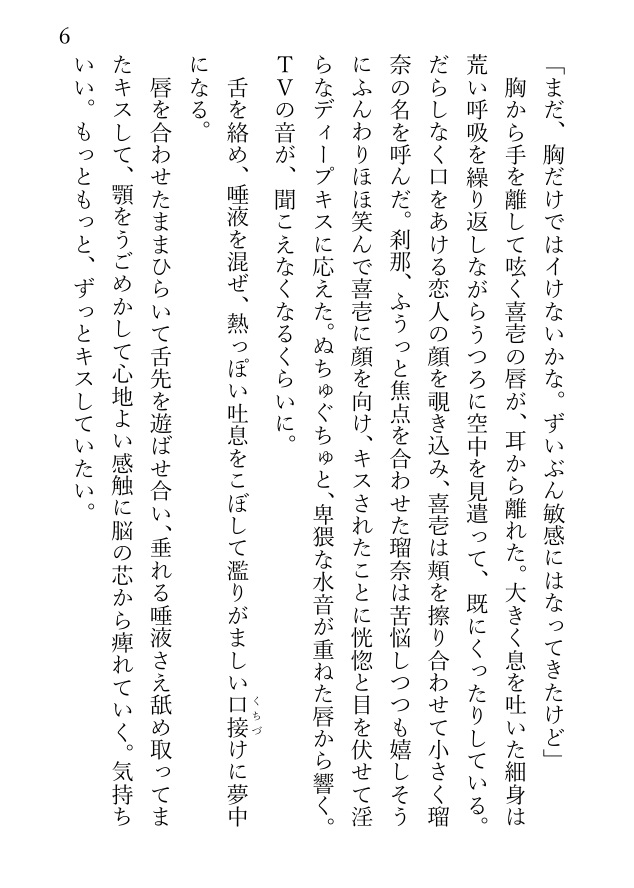 6
「まだ、胸だけではイけないかな。ずいぶん敏感にはなってきたけど」
　胸から手を離して呟く喜壱の唇が、耳から離れた。大きく息を吐いた細身は
荒い呼吸を繰り返しながらうつろに空中を見遣って、既にくったりしている。
だらしなく口をあける恋人の顔を覗き込み、喜壱は頬を擦り合わせて小さく瑠
奈の名を呼んだ。刹那、ふうっと焦点を合わせた瑠奈は苦悩しつつも嬉しそう
にふんわりほほ笑んで喜壱に顔を向け、キスされたことに恍惚と目を伏せて淫
らなディープキスに応えた。ぬちゅぐちゅと、卑猥な水音が重ねた唇から響く。
ＴＶの音が、聞こえなくなるくらいに。
　舌を絡め、唾液を混ぜ、熱っぽい吐息をこぼして濫りがましい口接けに夢中
くちづ
になる。
　唇を合わせたままひらいて舌先を遊ばせ合い、垂れる唾液さえ舐め取ってま
たキスして、顎をうごめかして心地よい感触に脳の芯から痺れていく。気持ち
いい。もっともっと、ずっとキスしていたい。